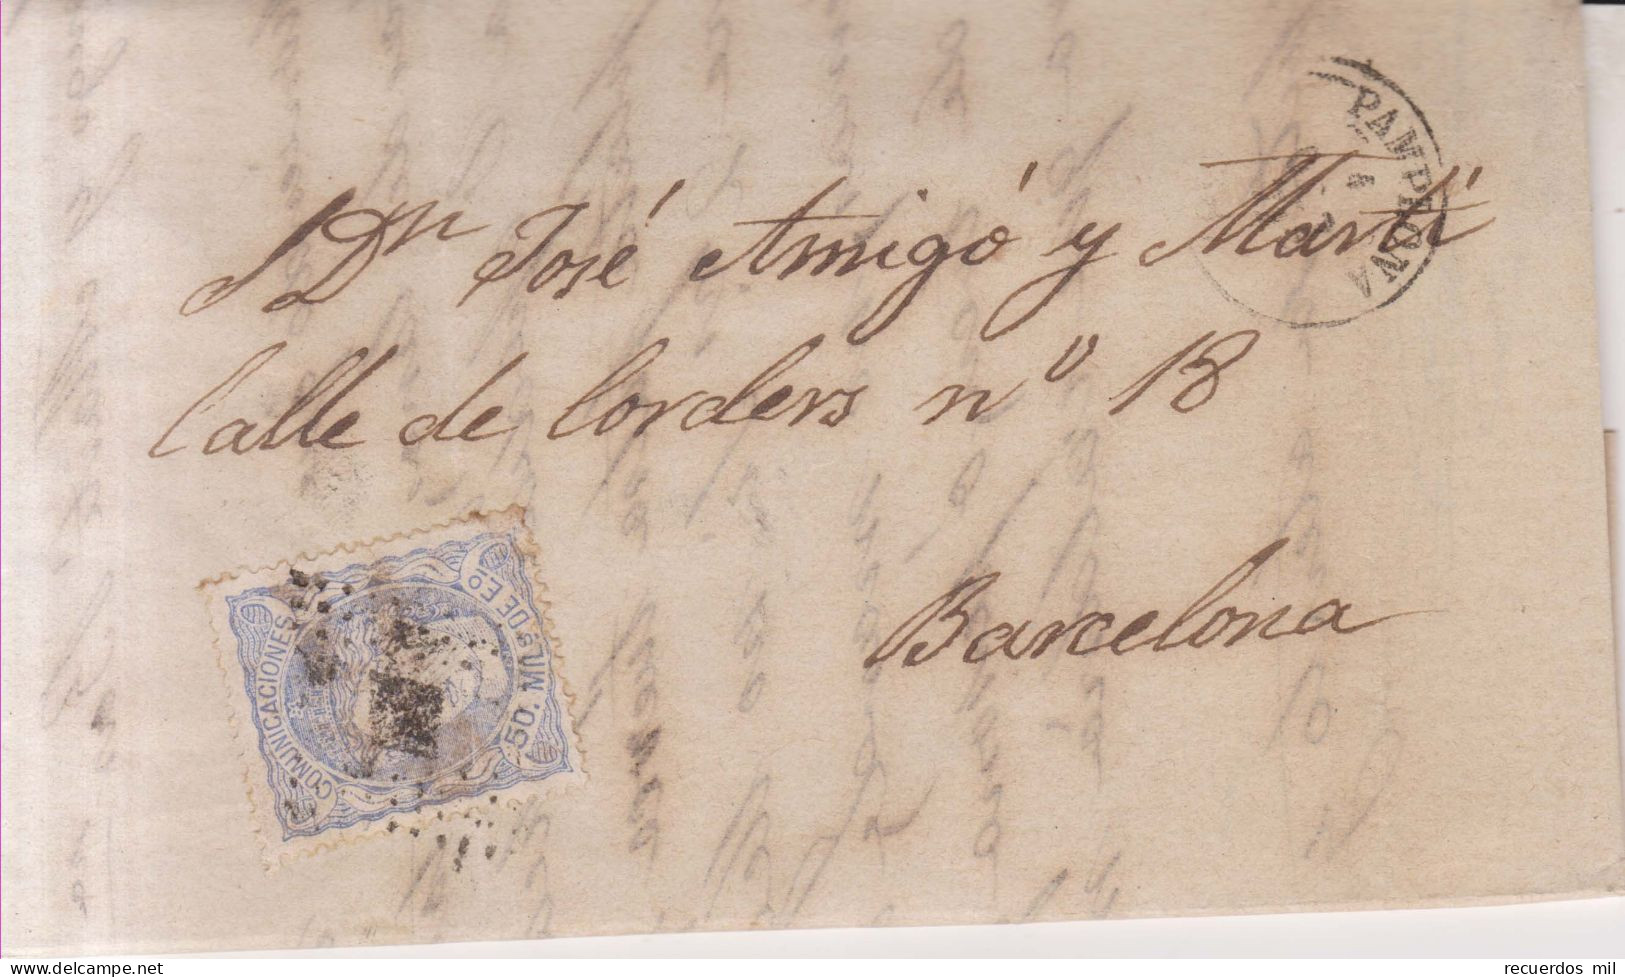 PAMPLONA
4
S Dn José Amigó y Martí
Calle de Corders nº 18
Barcelona
COMUNICACIONES
50. MILS DE Eo
recuerdos mil
www.delcampe.net